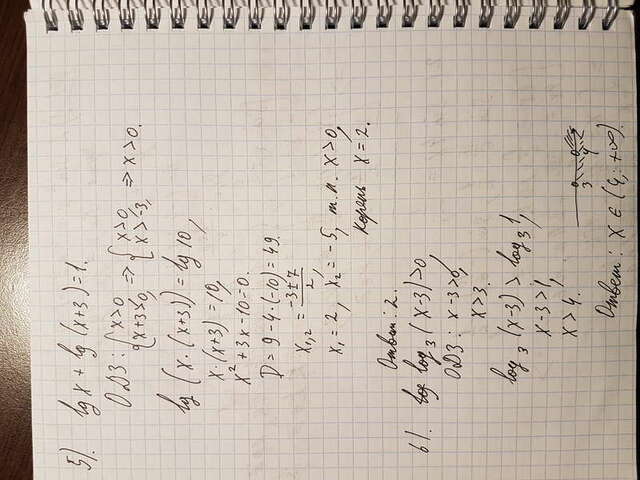 5). lg x + lg (x+3) = 1.
ОДЗ: { x>0 x+3>0, => { x>0, x>-3, => x>0.
lg (x·(x+3)) = lg 10,
x·(x+3) = 10,
x² + 3x - 10 = 0.
D = 9 - 4·(-10) = 49.
x₁,₂ = (-3±7)/2,
x₁ = 2, x₂ = -5, т.к. x>0,
корень x = 2.
Ответ: 2.
6). log₃ (x-3) > 0,
ОДЗ: x-3>0,
x>3.
log₃ (x-3) > log₃ 1,
x-3>1,
x>4.
3 4
Ответ: x ∈ (4; +∞).